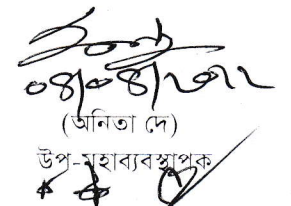 ০৪/০৪/২০২২
(অনিতা দে)
উপ-মহাব্যবস্থাপক